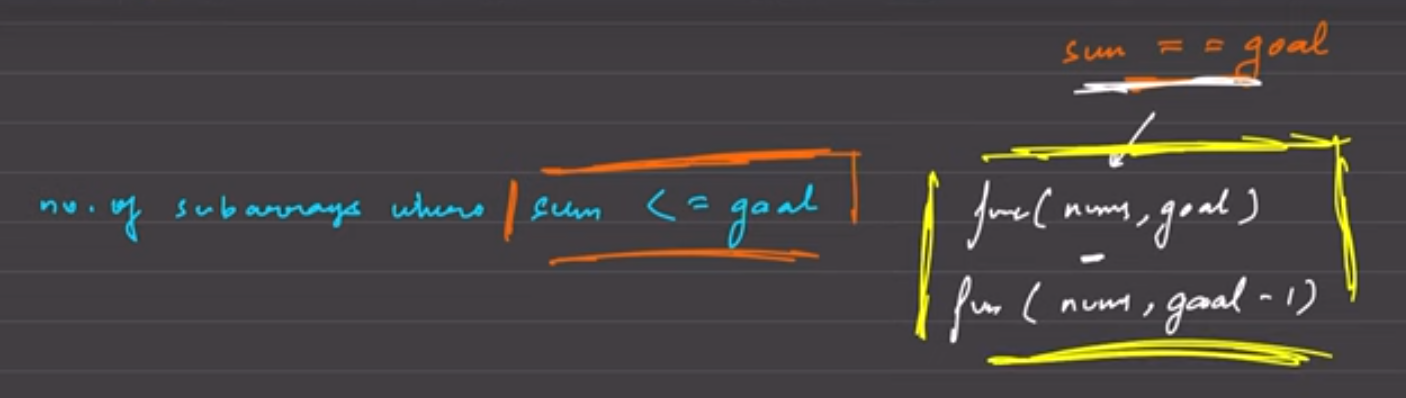 sum == goal
no. of subarrays where sum <= goal
func(nums, goal)
-
fun(nums, goal-1)